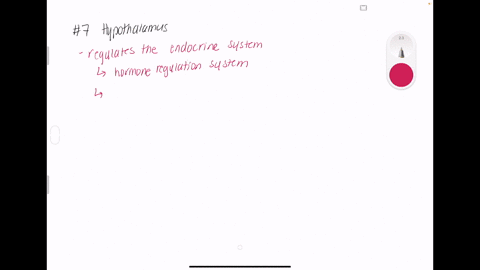 #7 Hypothalamus
- regulates the endocrine system
↳ hormone regulation system
↳